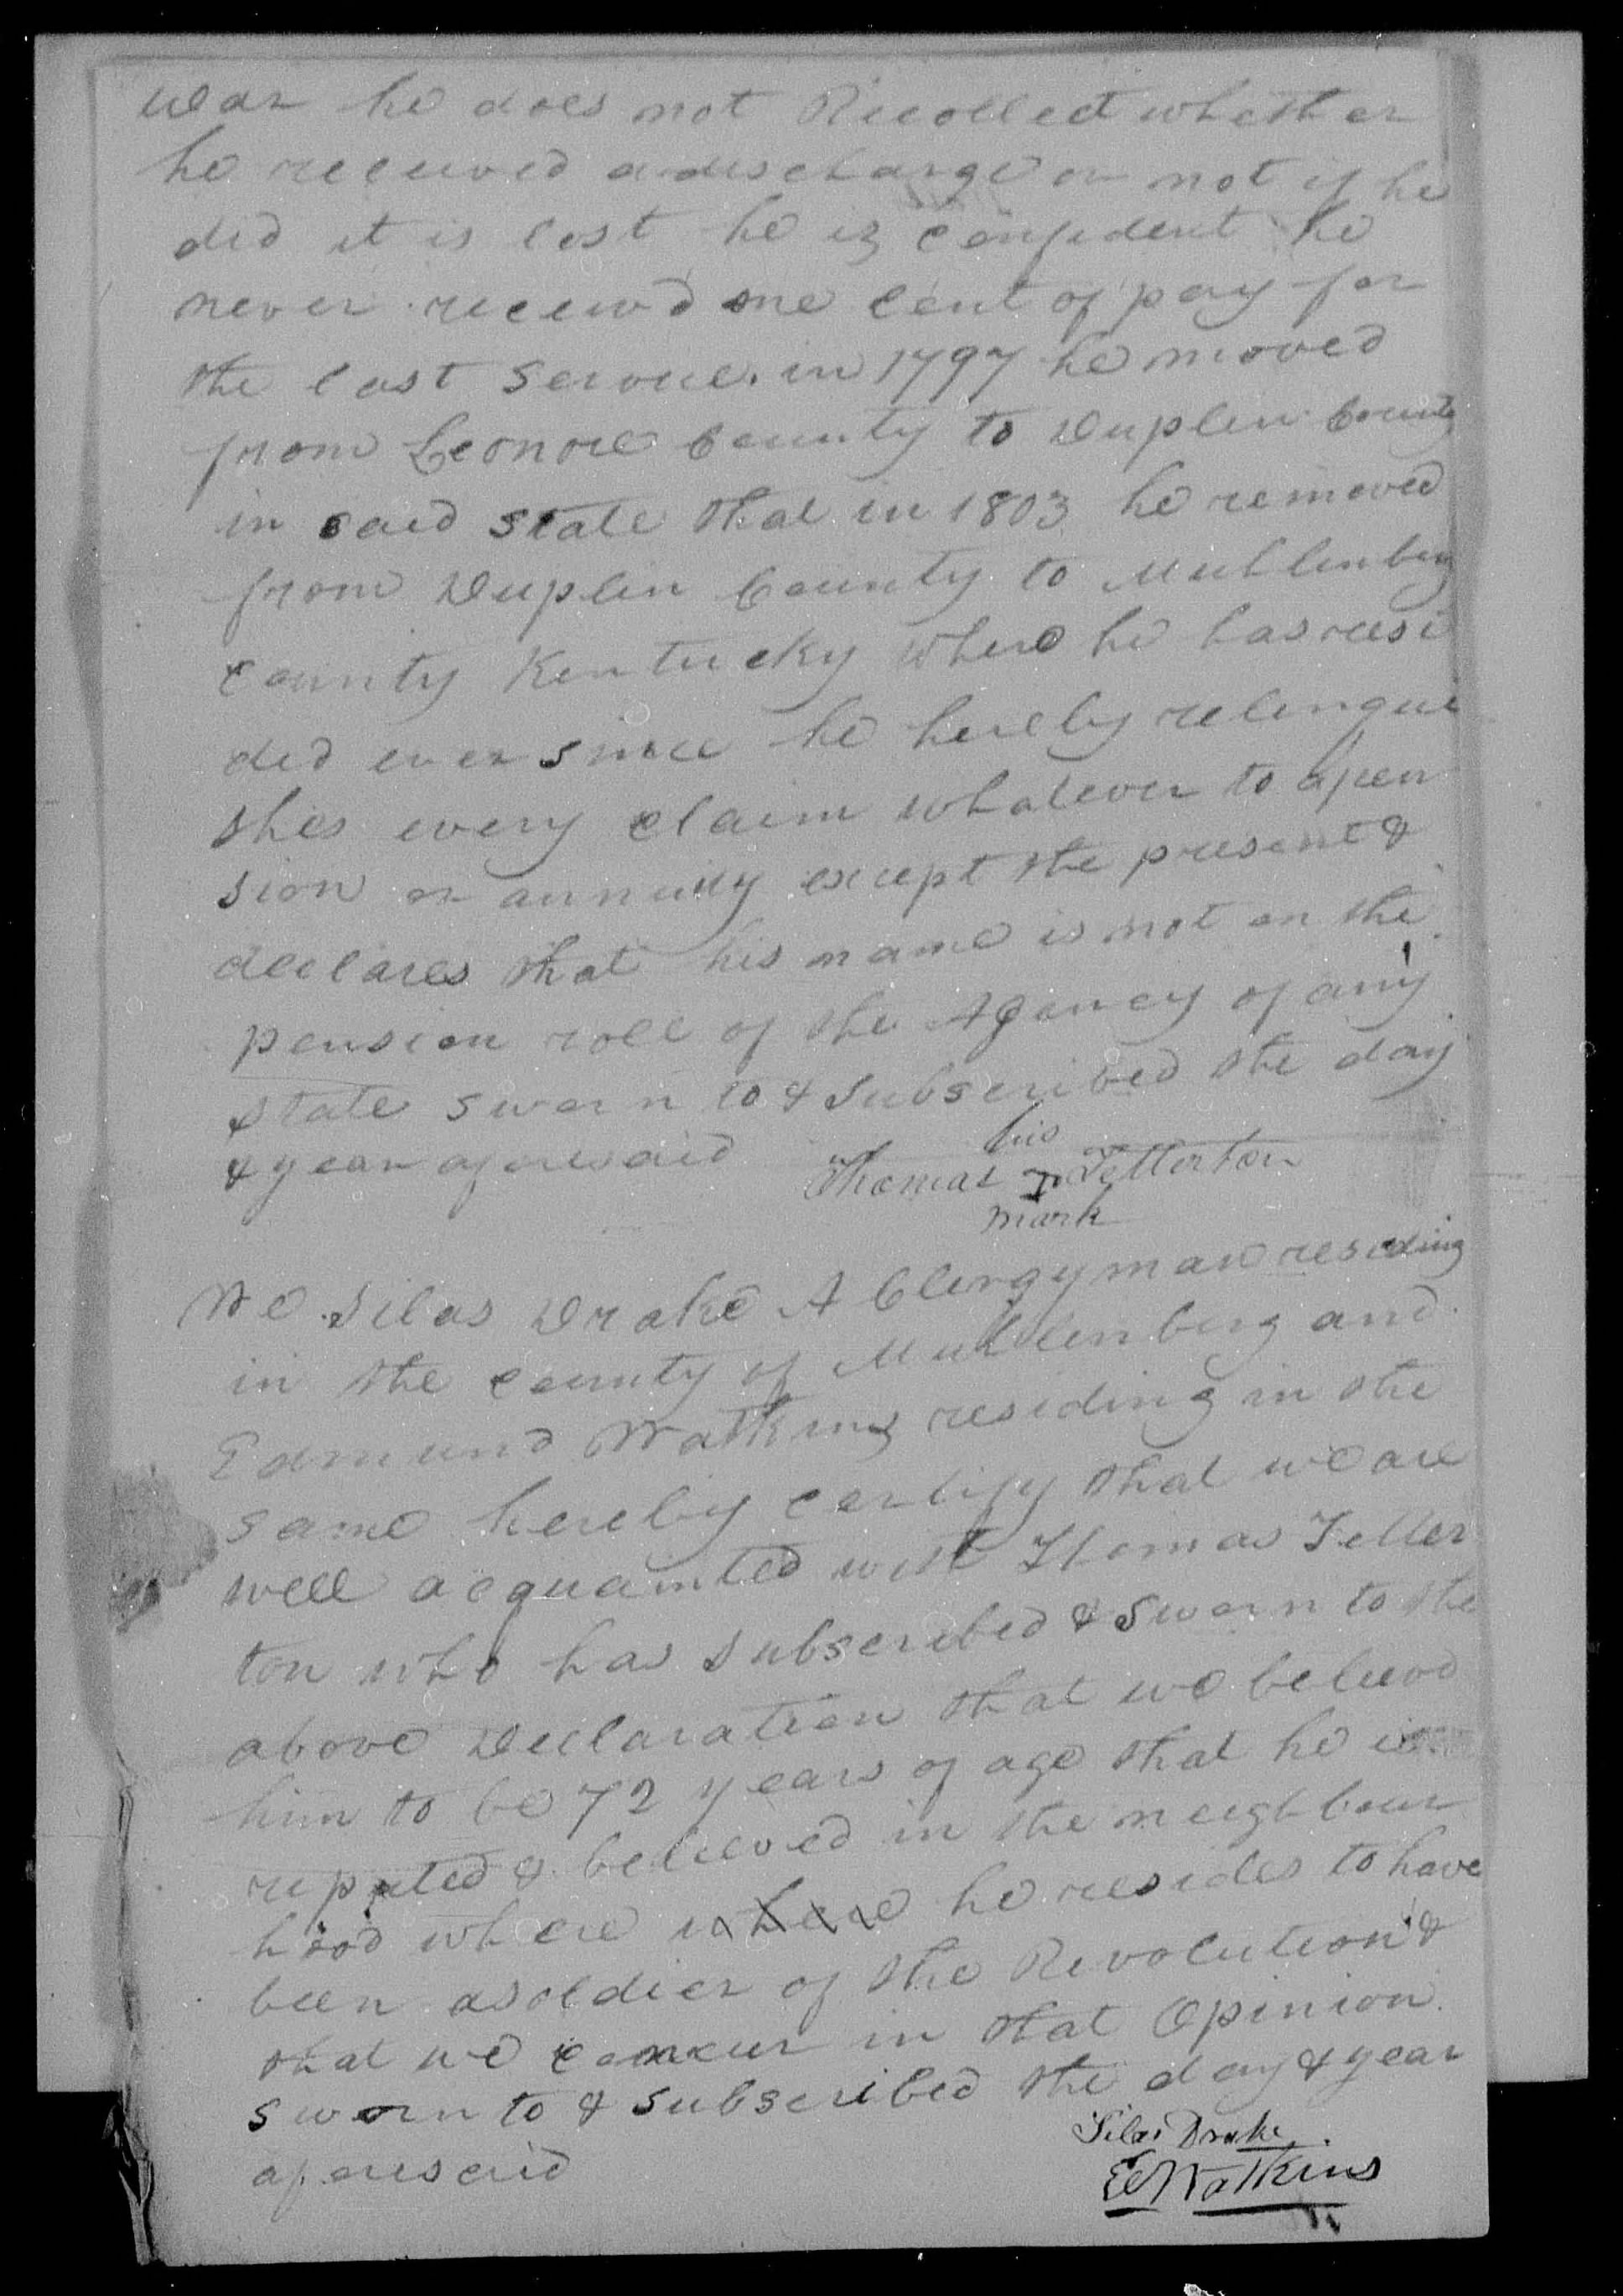 war he does not Recollect whether
he received a discharge or not if he
did it is lost he is confident he
never receivd one cent of pay for
the last service. in 1797 he moved
from Leonore County to Duplin County
in said State that in 1803 he removed
from Duplin County to Muhlenberg
County Kentucky where he has resi
ded ever since he hereby relinqui
shes every claim whatever to a pen
sion or annuity except the present &
declares that his name is not on the
pension roll of the Agency of any
state sworn to & Subscribed the day
& year aforesaid
his
Thomas T Tetterton
mark
We Silas Drake A Clergyman residing
in the County of Muhlenberg and
Edmund Watkins residing in the
same hereby certify that we are
well acquainted with Thomas Tetter
ton who has subscribed & sworn to the
above Declaration that we believe
him to be 72 years of age that he is
reputed & believed in the neighbour
hood where where he resides to have
been a soldier of the Revolution &
that we concur in that Opinion.
sworn to & subscribed the day & year
aforesaid
Silas Drake
Ed Watkins